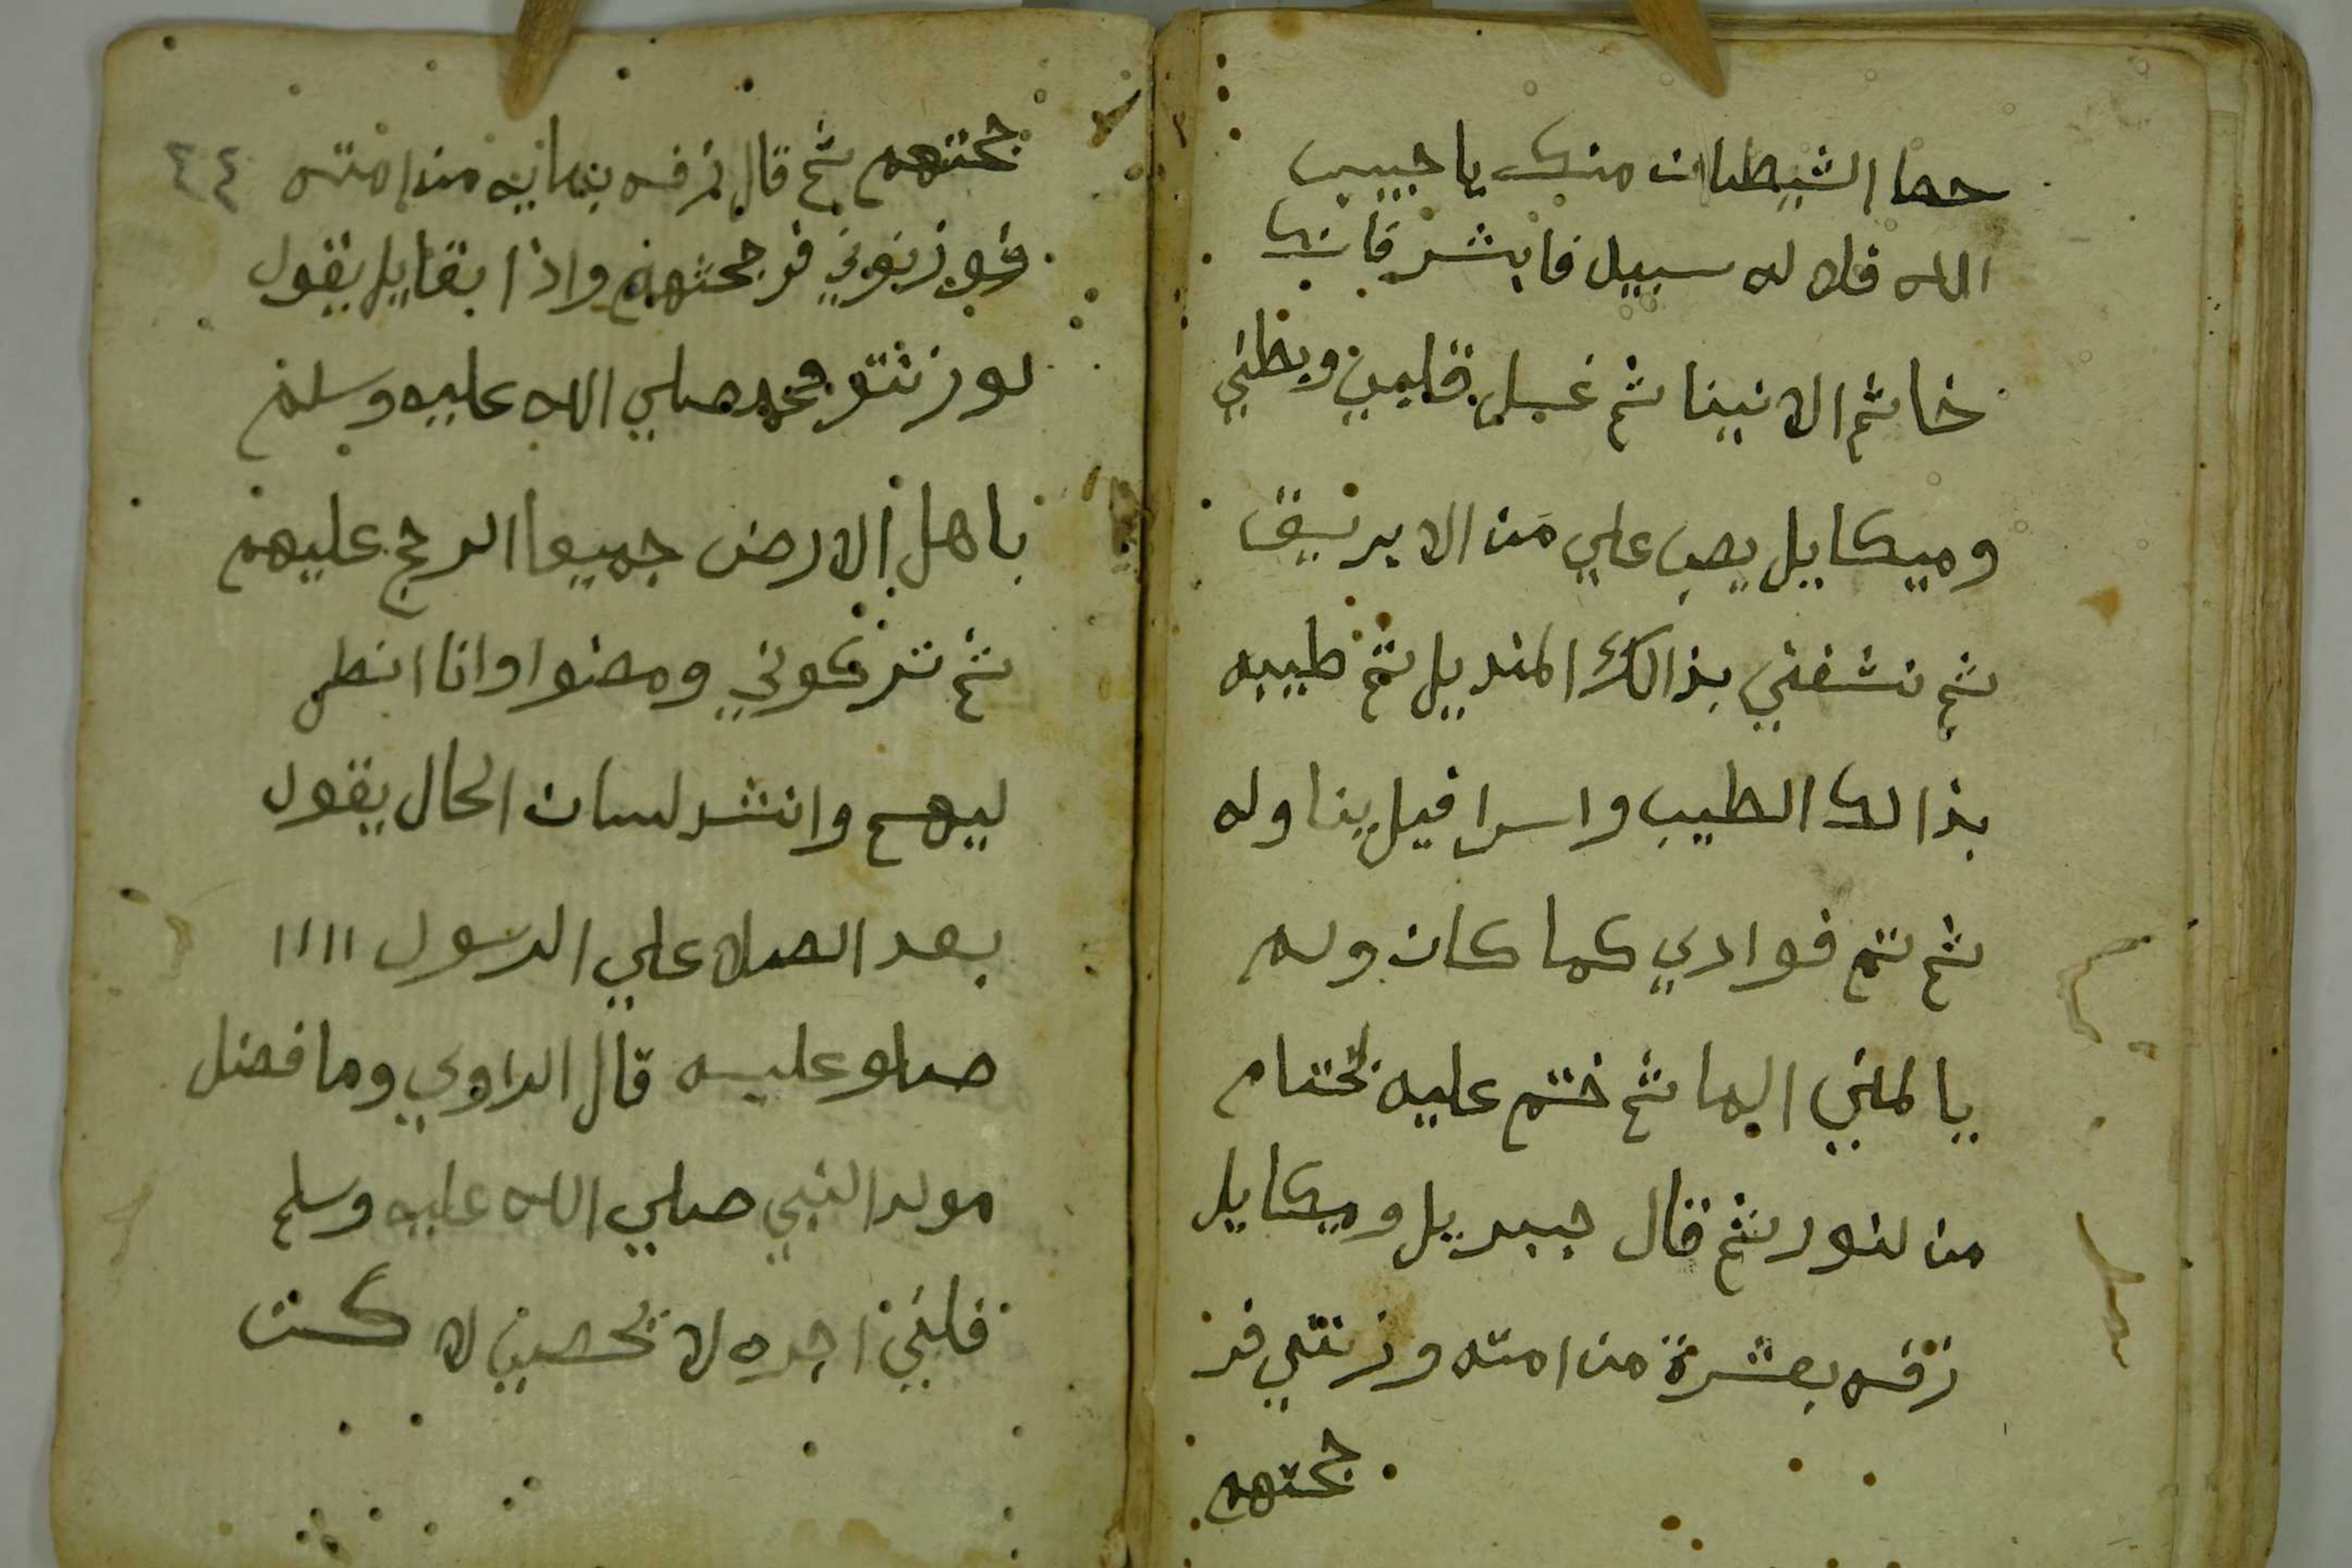 حظا الشيطان منك يا حبيب
الله فلا له سبيل فابشر فانك
خاتم الانبينا ثم غسل قلبي وبطني
وميكايل يصب علي من الابريق
ثم نشفني بذالك المنديل ثم طيبه
بذالك الطيب واسرافيل يناوله
ثم تم فوادي كما كان وله
يالمني ثم ختم عليه بختام
من لنور ثم قال جبريل وميكايل
زفه بعشرة من امته وزنتي فر
جحتهم
جحتهم ثم قال زفه بمايه من امته ٤٤
فوزنوني فرجحتهم واذا بقايل يقول
لوزنتو محمد صلي الله عليه وسلم
باهل الارض جميعا الرجح عليهم
ثم تركوني ومضوا وانا انظر
ليهم وانشد لسان الحال يقول
بعد الصلا علي الرسول ١١١١
صلو عليه قال الراوي وما فضل
مولد النبي صلي الله عليه وسلم
اجره لا تحصين لا كنت